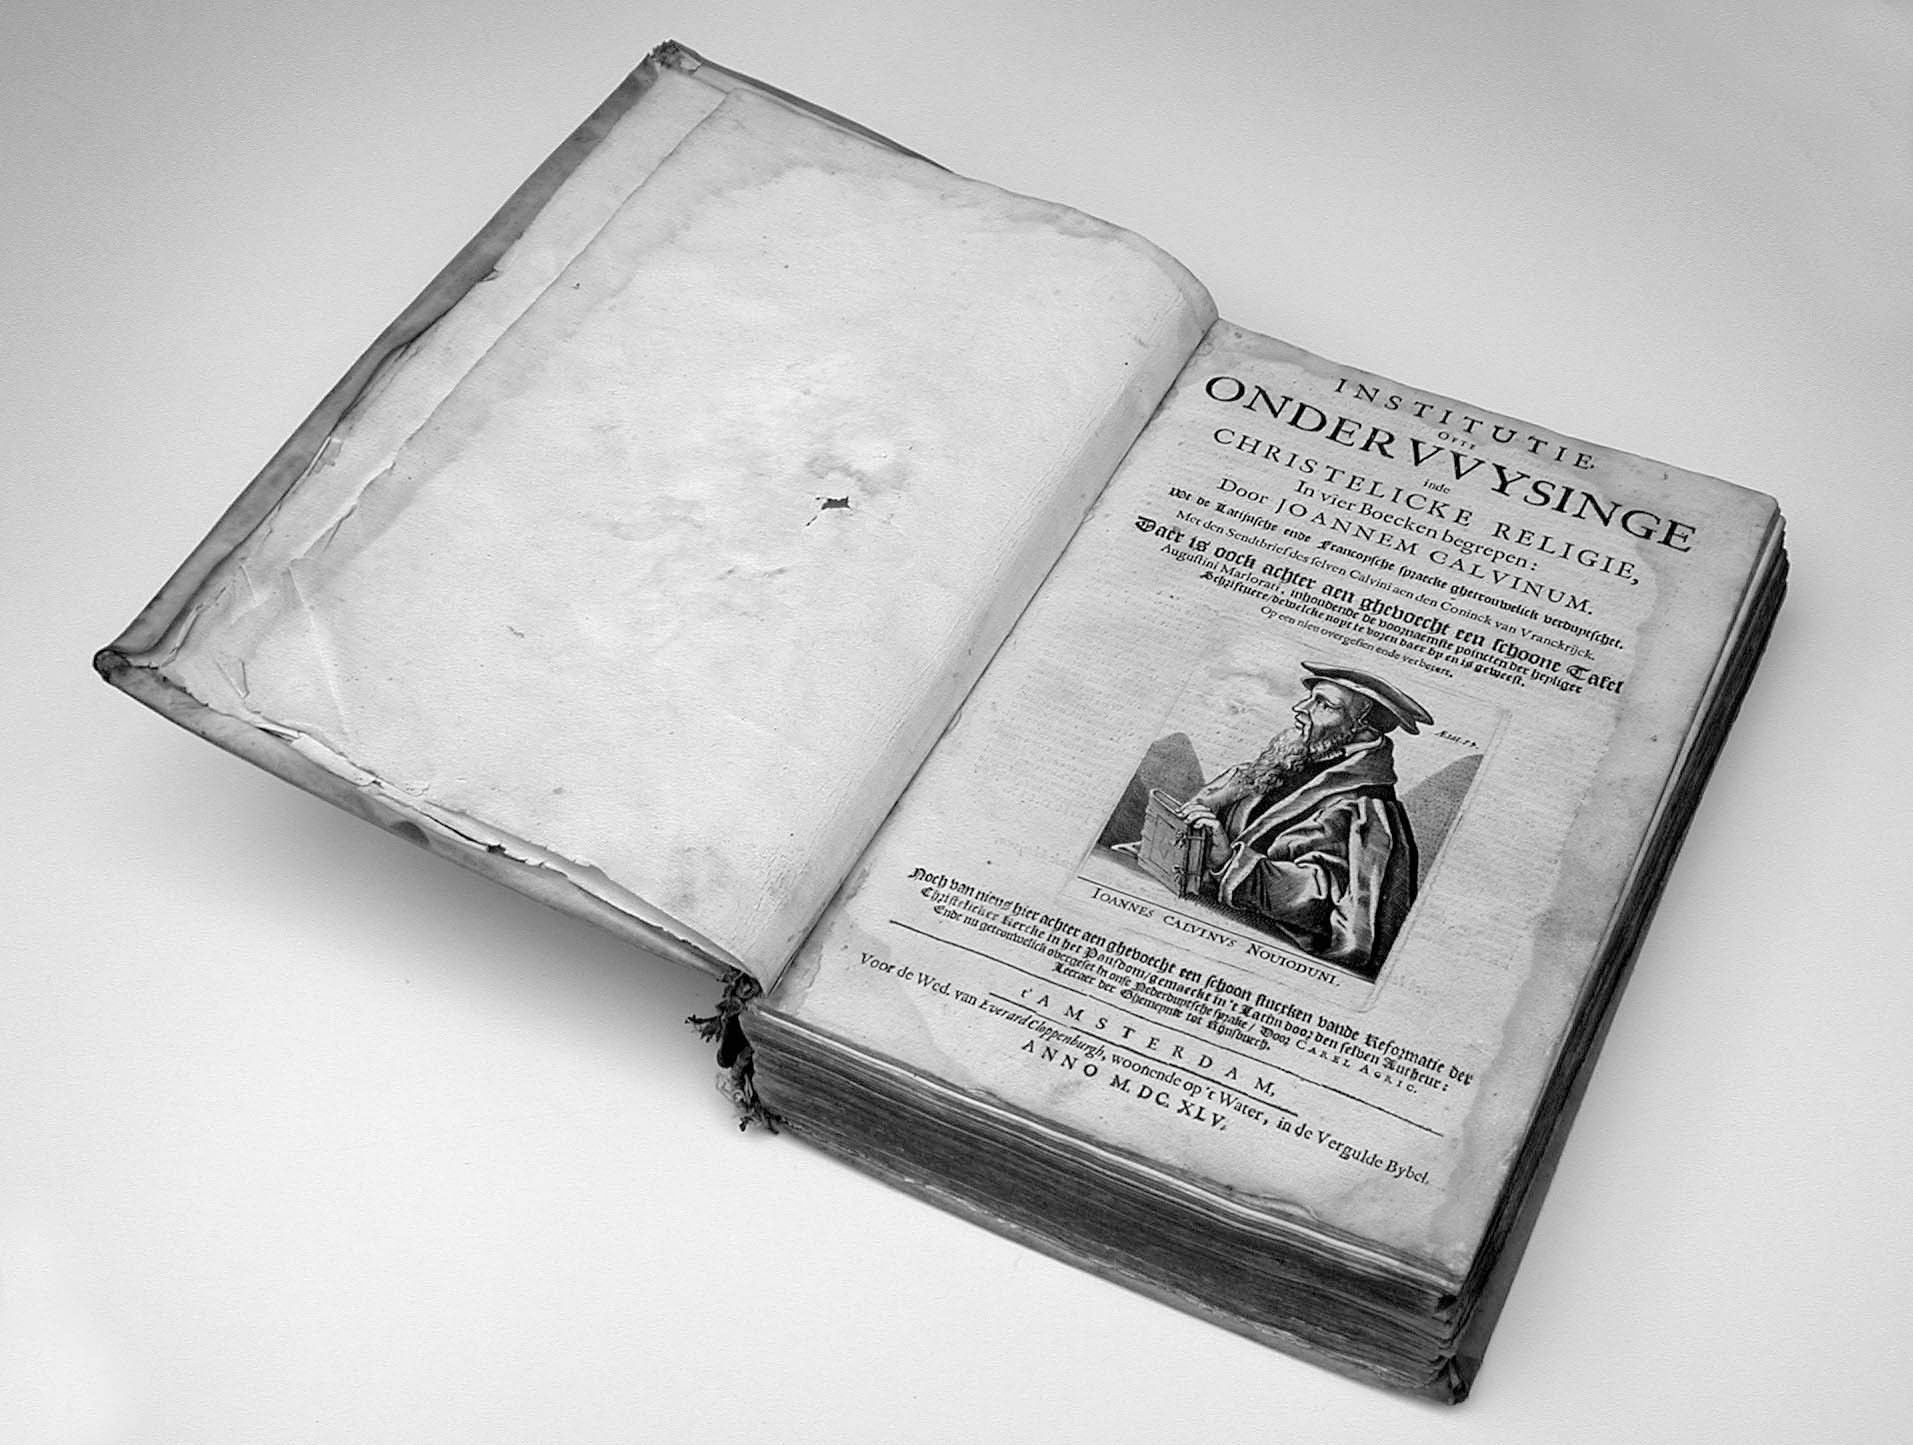 INSTITUTIE
OFTE
ONDERVVYSINGE
inde
CHRISTELICKE RELIGIE,
In vier Boecken begrepen:
Door JOANNEM CALVINUM.
Wt de Latijnsche ende Francoysche spraecke ghetrouwelick verduytschet.
Met den Sendtbrief des selven Calvini aen den Coninck van Vranckrijck.
Daer is oock achter aen ghevoecht een schoone Tafel
Augustini Marlorati, inhoudende de voornaemste poincten der heyliger
Schriftuere/dewelcke noyt te vozen daer by en is geweest.
Op een nieu overgesien ende verbetert.
IOANNES CALVINVS NOUIODUNI.
Noch van nieus hier achter aen ghevoecht een schoon stucxken vande Reformatie der
Christelicker Kercke in het Pausdom/gemaeckt in 't Latijn door den selven Autheur:
Ende nu getrouwelick overgeset in onse Nederduytsche sprake/ Door CAREL AGRIC.
Leeraer der Ghemeynte tot Rijnsburch.
t'AMSTERDAM,
Voor de Wed. van Everard Cloppenburgh, woonende op 't Water, in de Vergulde Bybel.
ANNO M. DC. XLV.